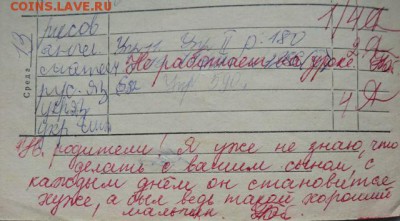 COINS.LAVE.RU
Среда 13
рисов 1/4
англ. Упр II р. 180
Не работает на уроке.
рус. яз 582 Упр 590. 4
укр яз
укр чит
Ув. родители! Я уже не знаю, что
делать с вашим сыном, с
каждым днём он становится
хуже, а был ведь такой хороший
мальчик.